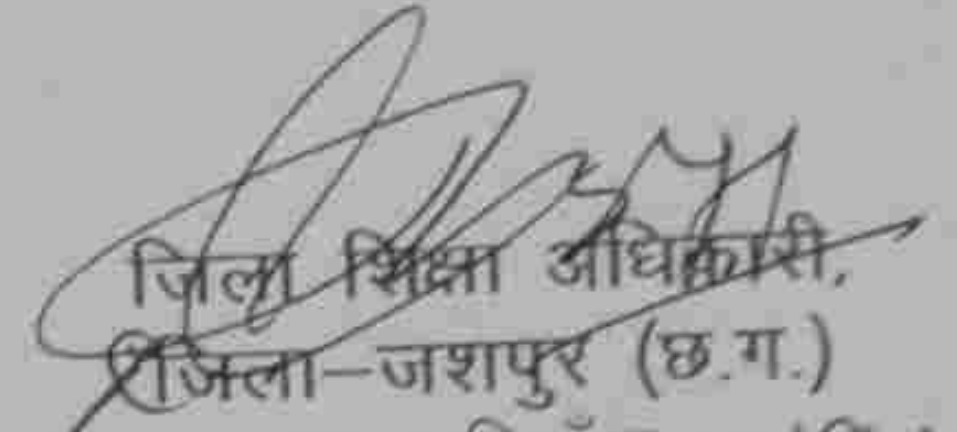 जिला शिक्षा अधिकारी,
जिला–जशपुर (छ.ग.)